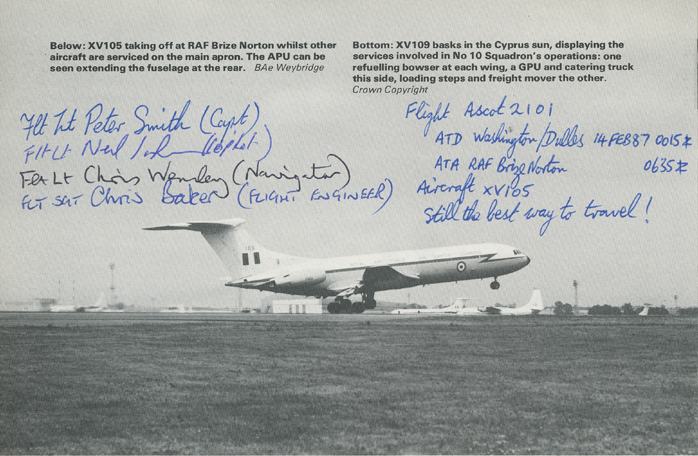 Below: XV105 taking off at RAF Brize Norton whilst other
aircraft are serviced on the main apron. The APU can be
seen extending the fuselage at the rear. BAe Weybridge
Bottom: XV109 basks in the Cyprus sun, displaying the
services involved in No 10 Squadron's operations: one
refuelling bowser at each wing, a GPU and catering truck
this side, loading steps and freight mover the other.
Crown Copyright
Flt Lt Peter Smith (Capt)
Flt Lt Neil
Flt Lt Chris (Navigator)
FLT SGT Chris Baker (FLIGHT ENGINEER)
Flight Ascot 2101
ATD Washington/Dulles 14FEB87 0015Z
ATA RAF Brize Norton 0635Z
Aircraft XV105
Still the best way to travel!